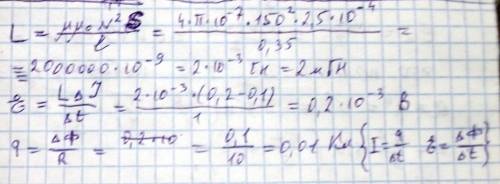 L = μμ₀N²S/l = 4·π·10⁻⁷·150²·2,5·10⁻⁴/0,35 =
= 2000000·10⁻⁹ = 2·10⁻³ Гн = 2мГн
ε = LΔI/Δt = 2·10⁻³·(0,2-0,1)/1 = 0,2·10⁻³ В
q = ΔΦ/R = 0,2·10 = 0,1/10 = 0,01 Кл {I = q/Δt ε = ΔΦ/Δt}